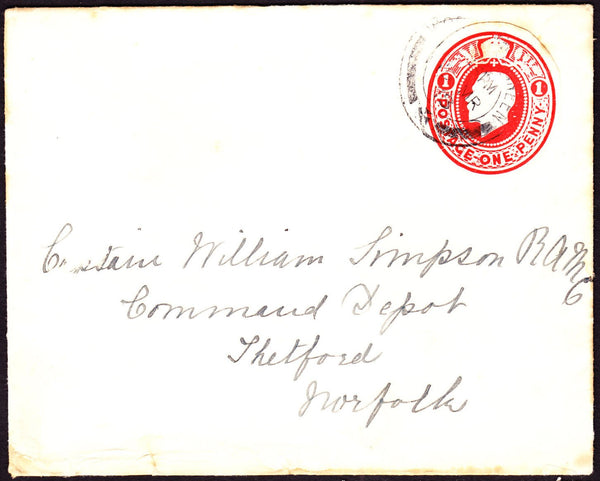 1 1
POSTAGE ONE PENNY
Captain William Simpson R A M C
Command Depot
Thetford
Norfolk